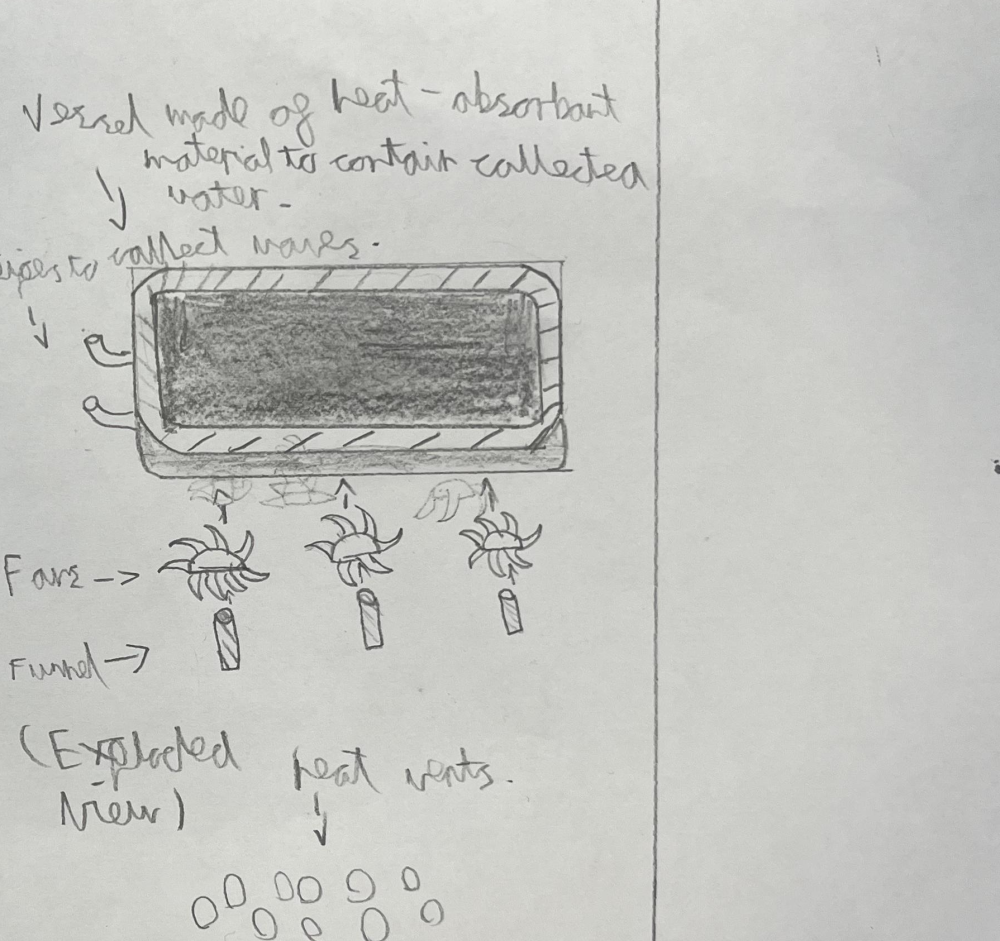 Vessel made of heat-absorbant
material to contain collected
water.
pipes to collect waves.
Fans ->
Funnel ->
(Exploded
View)
heat vents.